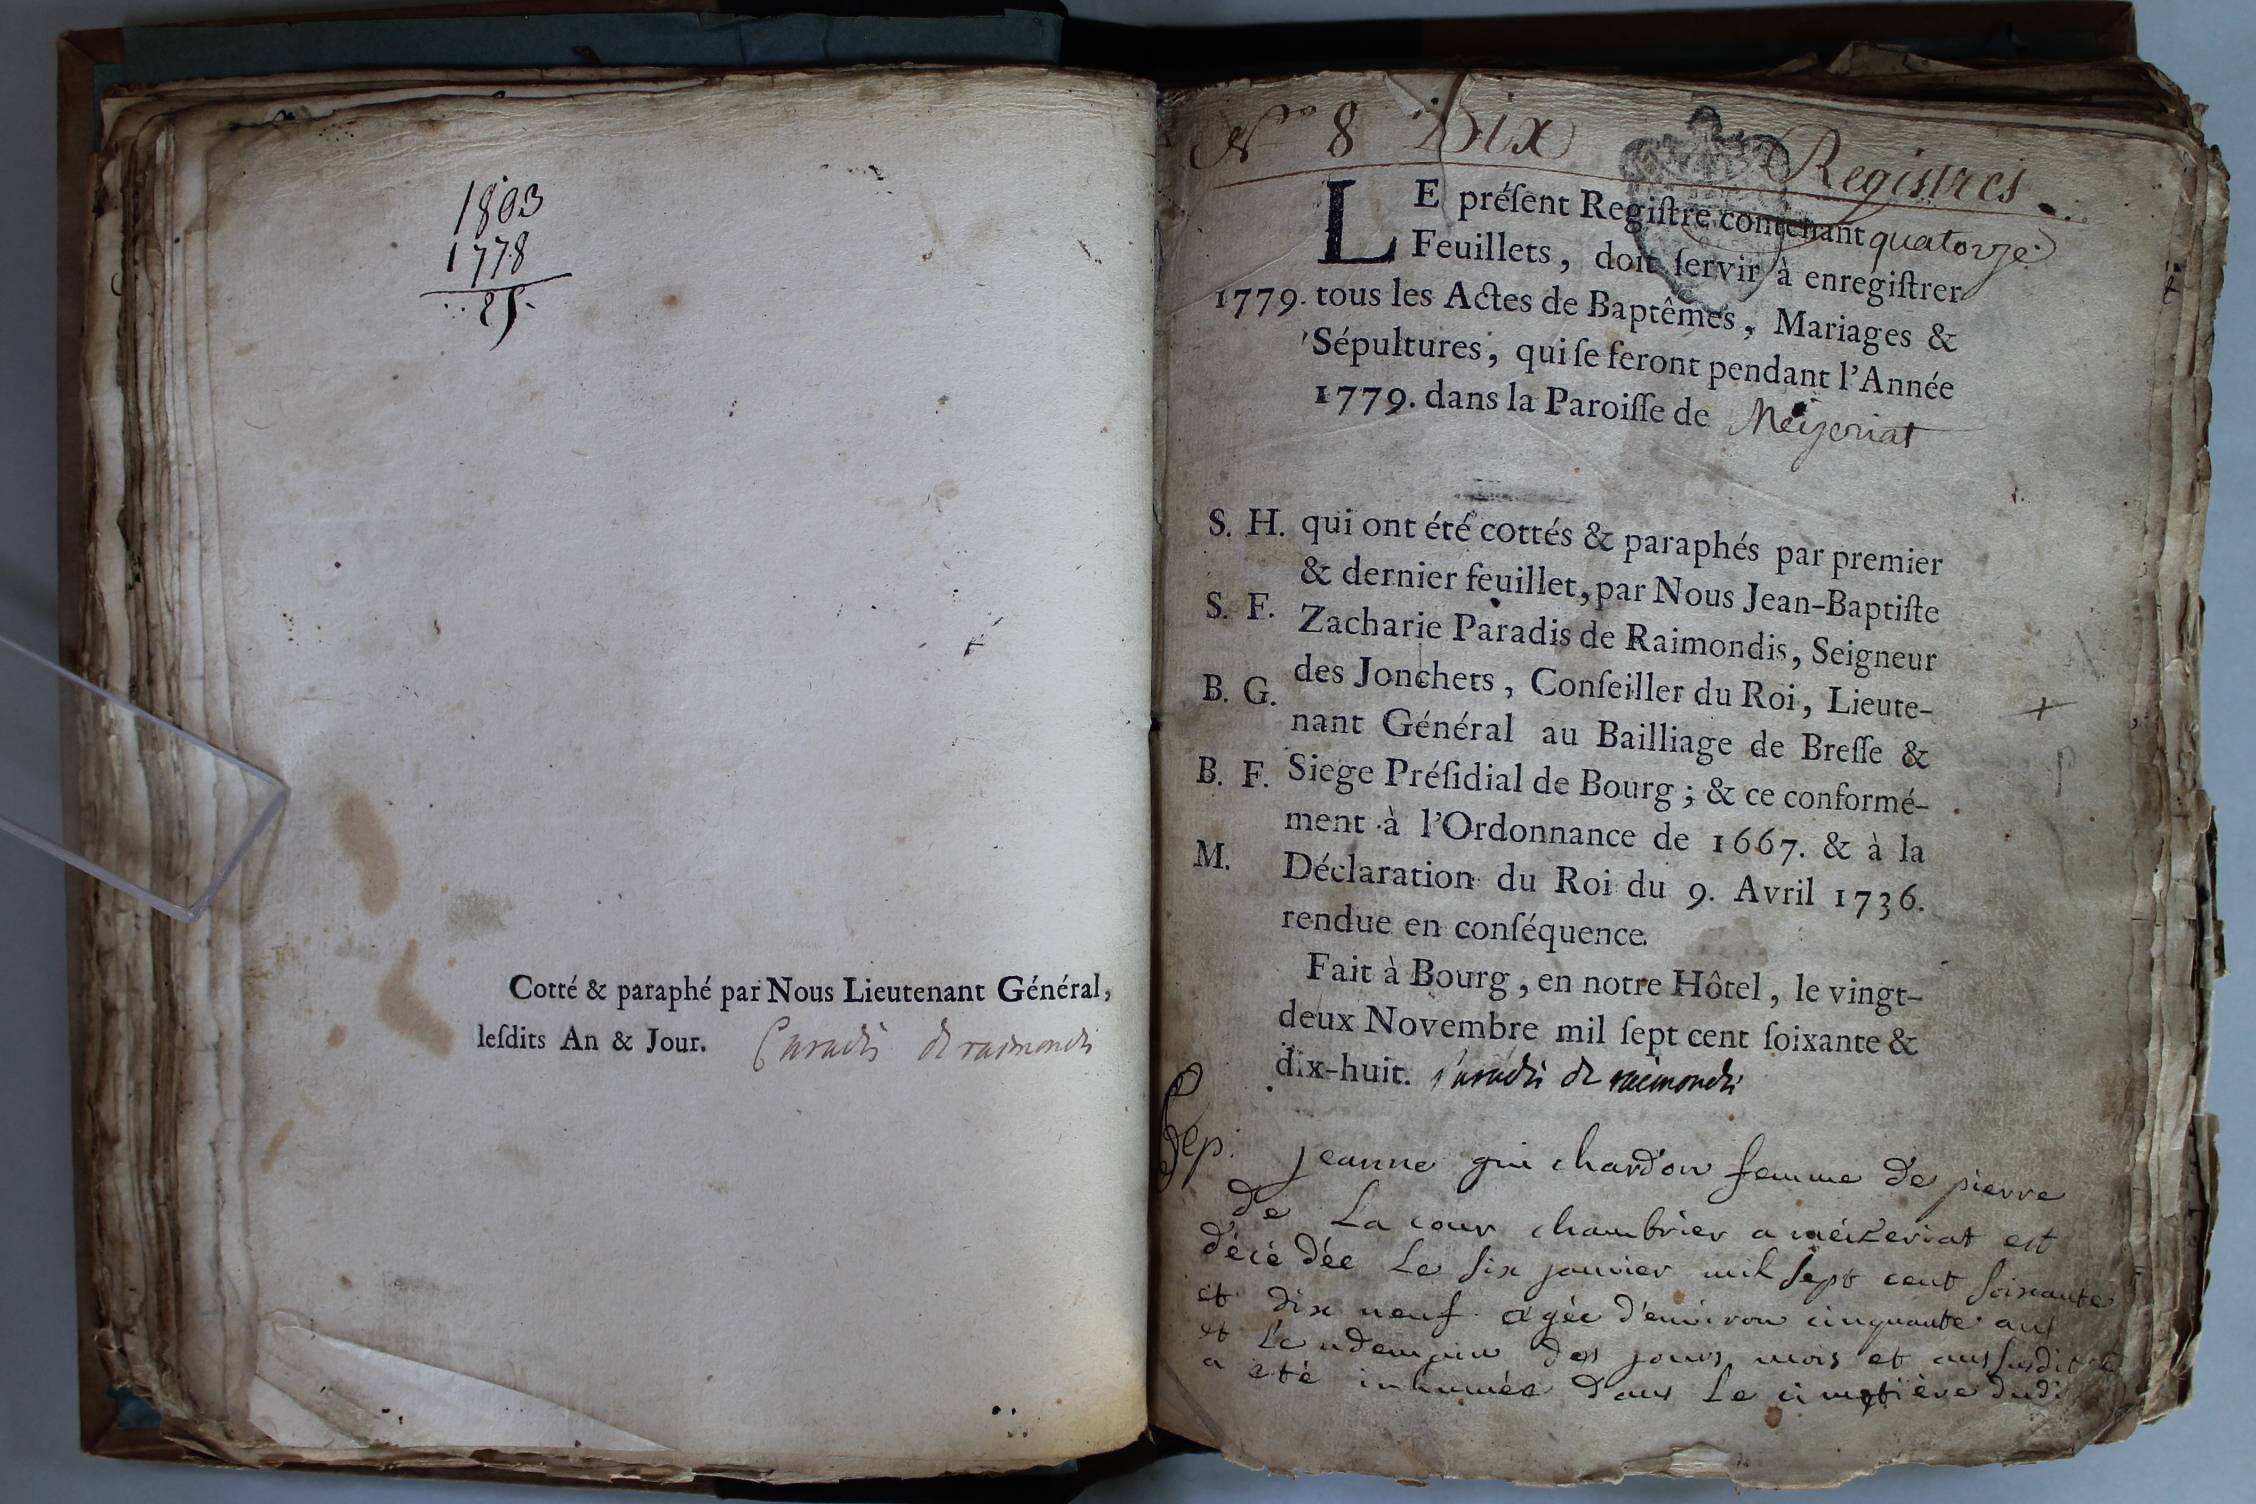 1803
1778
25.
Cotté & paraphé par Nous Lieutenant Général,
leſdits An & Jour. Paradis de raimondis
No 8 Dix Registres
LE préſent Regiſtre contenant quatorze
Feuillets, doit ſervir à enregiſtrer
1779. tous les Actes de Baptêmes, Mariages &
Sépultures, qui ſe feront pendant l'Année
1779. dans la Paroiſſe de Meizeriat
S. H. qui ont été cottés & paraphés par premier
& dernier feuillet, par Nous Jean-Baptiſte
S. F. Zacharie Paradis de Raimondis, Seigneur
des Jonchets, Conſeiller du Roi, Lieute-
B. G. nant Général au Bailliage de Breſſe &
B. F. Siege Préſidial de Bourg; & ce conformé-
ment à l'Ordonnance de 1667. & à la
M. Déclaration du Roi du 9. Avril 1736.
rendue en conſéquence.
Fait à Bourg, en notre Hôtel, le vingt-
deux Novembre mil ſept cent ſoixante &
dix-huit. Paradis de raimondis
Sep. jeanne gui chardon femme de pierre
de La cour chambrier a méizeriat est
décédée Le six janvier mil sept cent soixante
et dix neuf agée d'environ cinquante ans
et Le ndemain des jours mois et ans susdit
a eté inhumée dans Le cimetière dudi